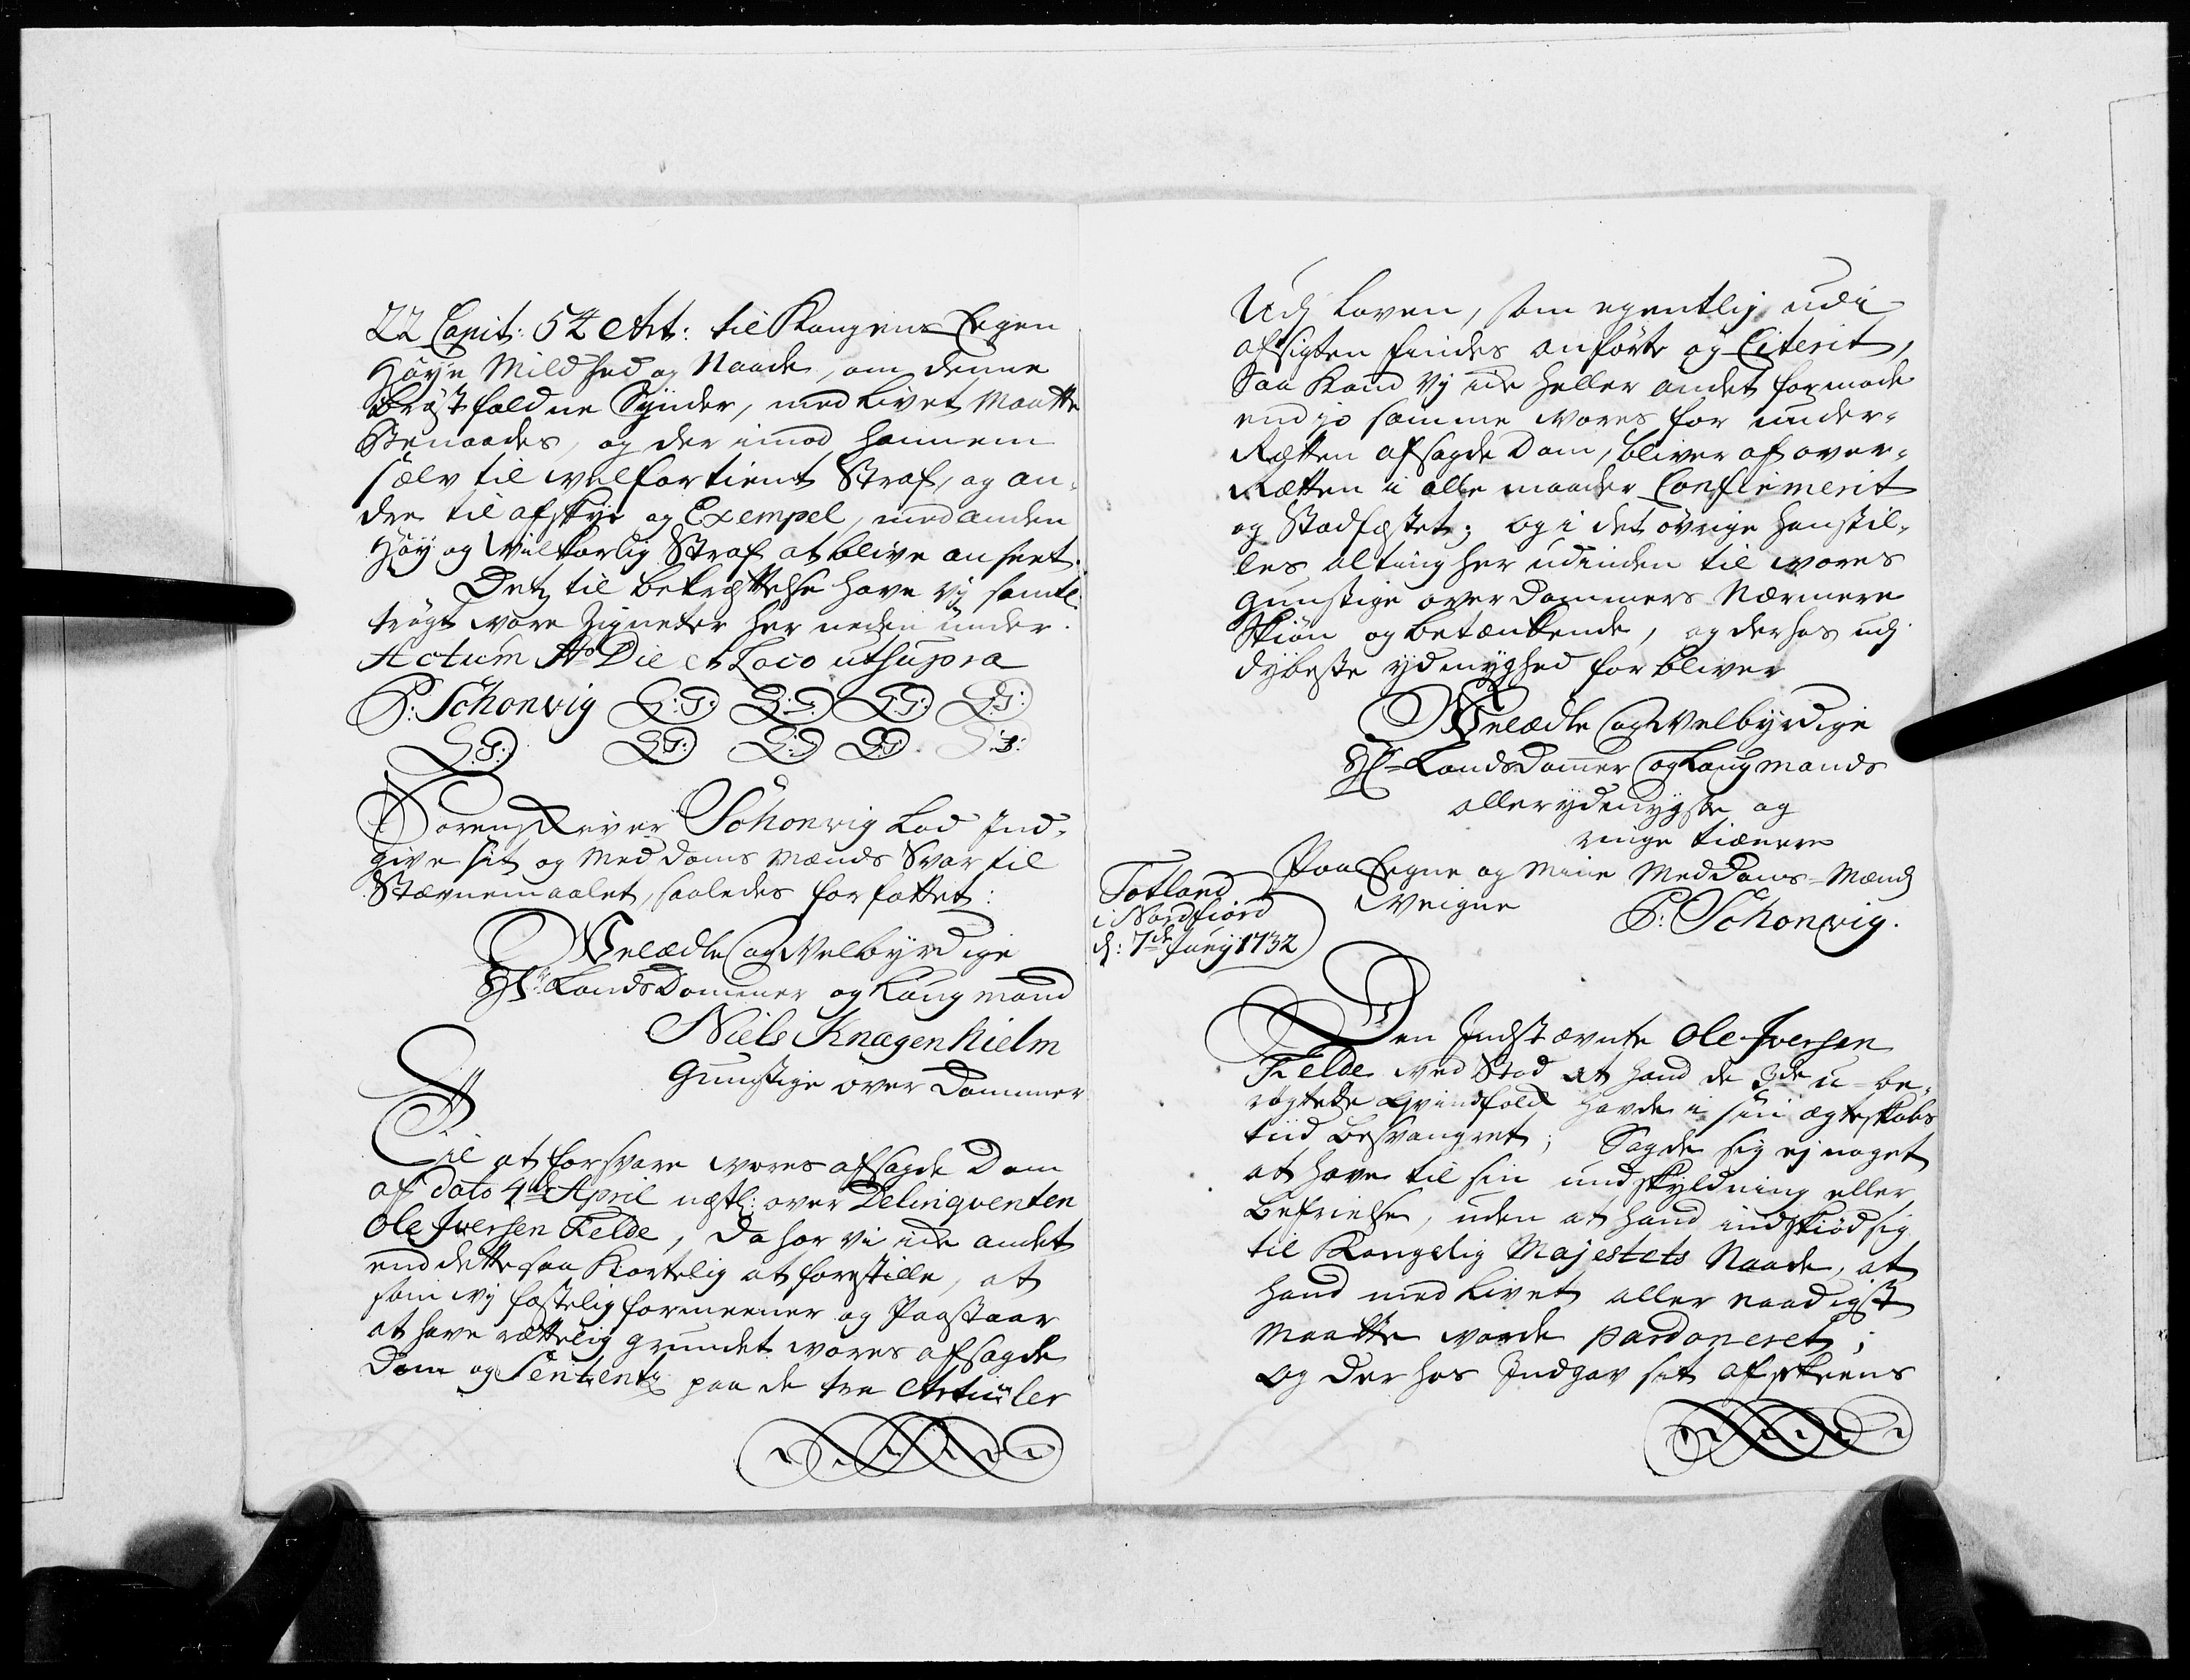 22 Capit: 52 Art: til Kongens Egen
Høye Mildhed og Naade, om denne
Brøstfældne Synder, med Livet Maatte
Benaades, og der imod hannem
sælv til velfortient Straf, og an-
dre til afskye og Exempel, med anden
Høy og vilkorlig Straf at blive anseet.
Detz til bekræftelse have vij samtl:
trøgt vore Zigneter her neden under.
Actum Ao Die et Loco utsupra
P: Schonvig L:S: L:S: L:S: L:S:
L:S: L:S: L:S: L:S: L:S:
Sorenskriver Schonvig Lod Ind-
give sit og Meddoms Mænds Svar til
Stævnemaalet, saaledes forfattet:
Velædle og Velbyrdige
Hr: LandsDommer og Laugmand
Niels Knagenhielm
Gunstige over Dommer
Til at forsvare vores afsagde Dom
af dato 4de April næstl: over Delinqventen
Ole Iversen Felde, da har vi icke andet
end dette saa Kortelig at forestille, at
som vij fastelig formeener og Paastaar
at have rættelig grundet vores afsagde
Dom og Sententz paa de tre Articler
Udj Loven, som egentlig udi
afsigten findes anførte og Citerit,
Saa Kand vij icke heller andet formode
end jo samme vores for under-
Rætten afsagde Dom, bliver af over-
Rætten i alle maader Confirmerit
og Stadfæstet; og i det øvrige henstil-
les alting her udinden til vores
gunstige over Dommers Nærmere
Skiøn og betænkende, og derhos udj
dybeste ydmyghed forbliver
Velædle og Velbyrdige
Hr= LandsDommer og Laugmands
allerydmygste og
ringe tiænere
Totland
i Nordfiord
d: 7de Junij 1732
Paa Egne og Mine MedDoms-Mænds
Veigne
P: Schonvig.
Den Indstævnte Ole Iversen
Felde ved Stod at hand de 3de u-be-
røgtede qvindfolk havde i sin ægteskabs
tiid besvangret; Sagde sig ej noget
at have til sin undskyldning eller
befrielse, uden at hand indskiød sig
til Kongelig Majestets Naade, at
hand med Livet aller naadigst
Maatte vorde pardoneret;
og derhos Indgav sit afskeens